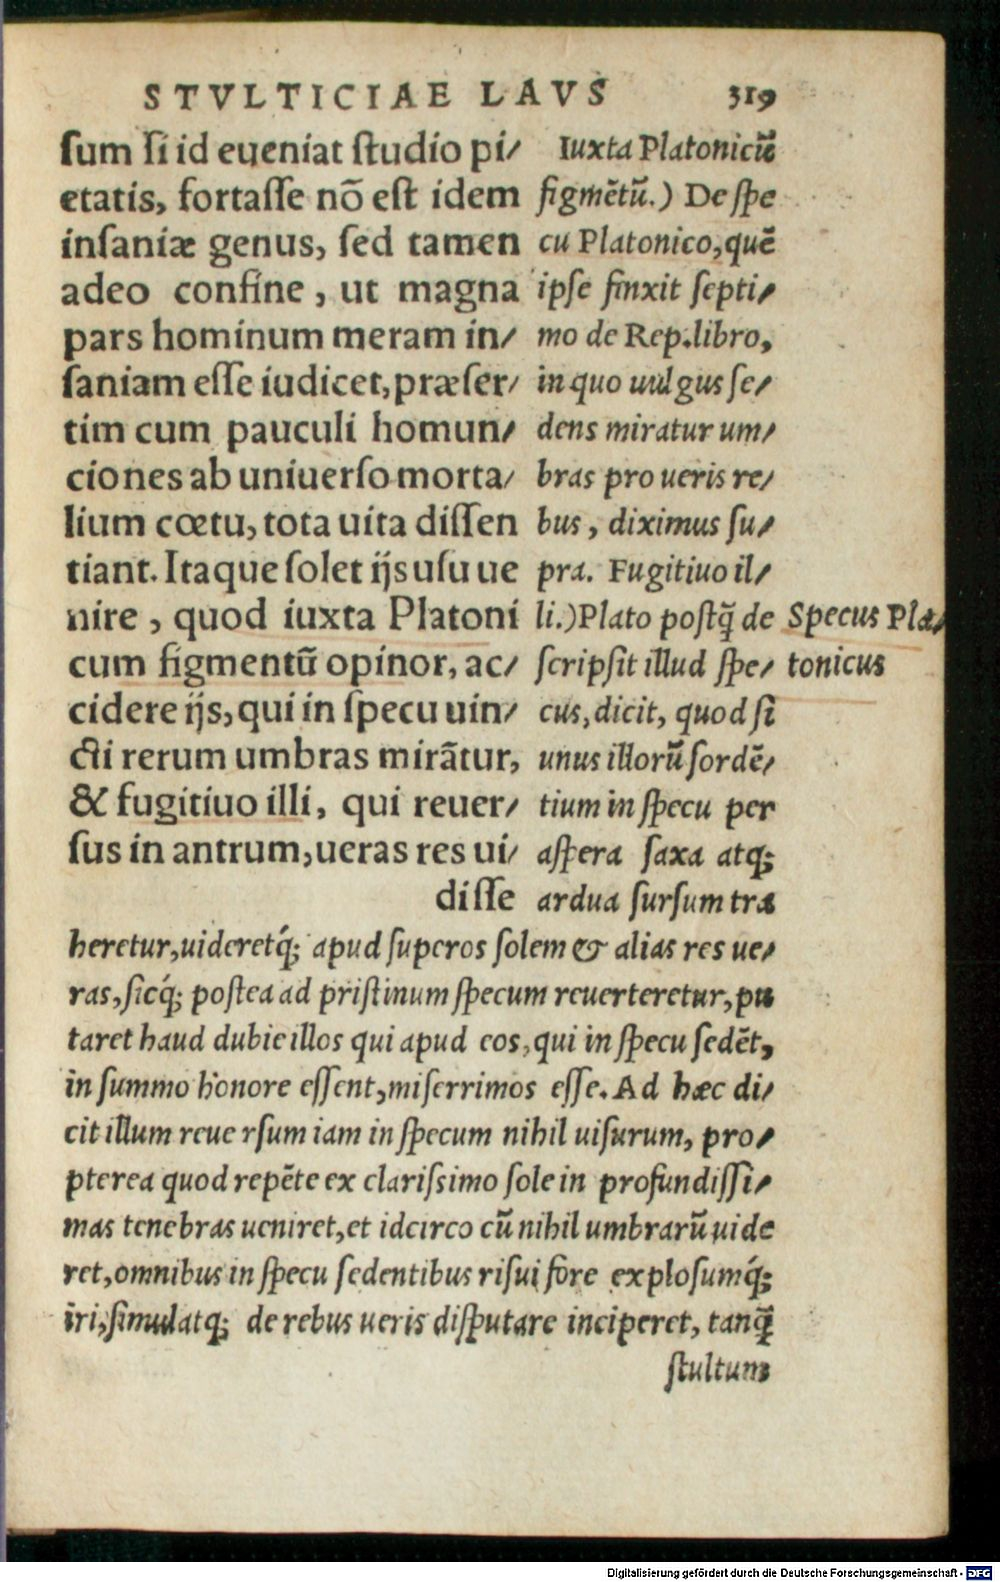 STVLTICIAE LAVS 319
sum si id eueniat studio pi/
etatis, fortasse nō est idem
insaniæ genus, sed tamen
adeo confine, ut magna
pars hominum meram in/
saniam esse iudicet, præser/
tim cum pauculi homun/
ciones ab uniuerso morta/
lium cœtu, tota uita dissen
tiant. Itaque solet ijs usu ue
nire, quod iuxta Platoni
cum figmentū opinor, ac/
cidere ijs, qui in specu uin/
cti rerum umbras mirātur,
& fugitiuo illi, qui reuer/
sus in antrum, ueras res ui/
disse
Iuxta Platonicū
figmētū.) De spe
cu Platonico, quē
ipse finxit septi/
mo de Rep. libro,
in quo uulgus se/
dens miratur um/
bras pro ueris re/
bus, diximus su/
pra. Fugitiuo il/
li.) Plato postq̄ de
scripsit illud spe/
cus, dicit, quod si
unus illorū sordē/
tium in specu per
aspera saxa atq;
ardua sursum tra
Specus Pla/
tonicus
heretur, uideretq́; apud superos solem & alias res ue/
ras, sicq́; postea ad pristinum specum reuerteretur, pu
taret haud dubie illos qui apud eos, qui in specu sedēt,
in summo honore essent, miserrimos esse. Ad hæc di/
cit illum reuersum iam in specum nihil uisurum, pro/
pterea quod repēte ex clarissimo sole in profundissi/
mas tenebras ueniret, et idcirco cū nihil umbrarū uide
ret, omnibus in specu sedentibus risui fore explosumq́;
iri, simulatq; de rebus ueris disputare inciperet, tanq̄
stultum
Digitalisierung gefördert durch die Deutsche Forschungsgemeinschaft - DFG